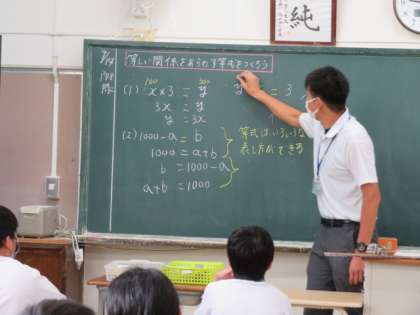 純
等しい関係をあらわす等式をつくろう
(1) x×3 = y
3x = y
y = 3x
y = 3
(2) 1000-a = b
1000 = a+b
b = 1000-a
a+b = 1000
等式はいろいろな
表し方ができる